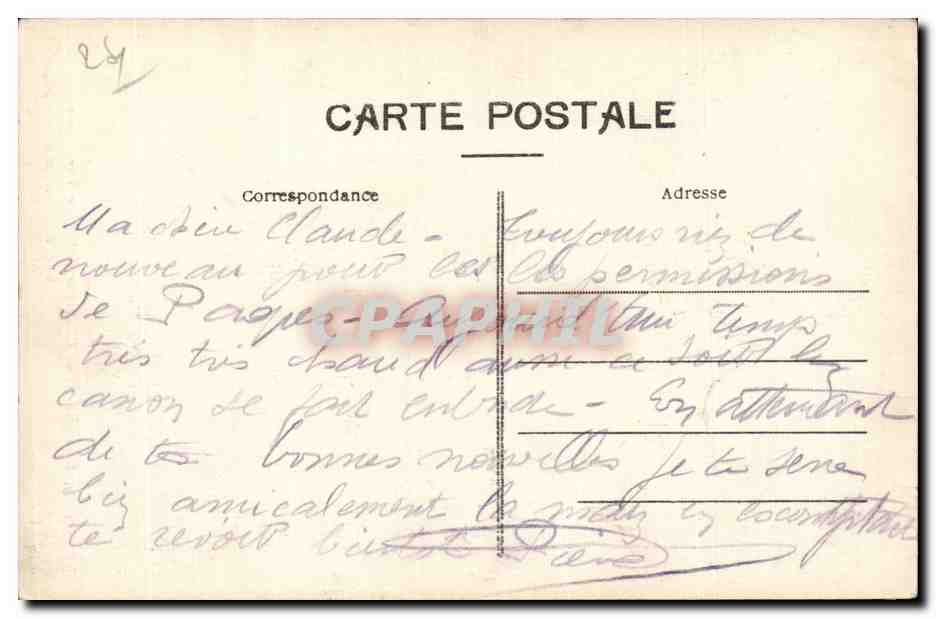 CARTE POSTALE
Correspondance
Adresse
Claude - Toujours rien de
nouveau pour les permissions
de Paques - Aujourd'hui temps
très très chaud aussi ce soir le
canon se fait entendre - En attendant
de tes bonnes nouvelles je te serre
bien amicalement la main en escomptant
te revoir bientôt Pierre
CPAPHIL